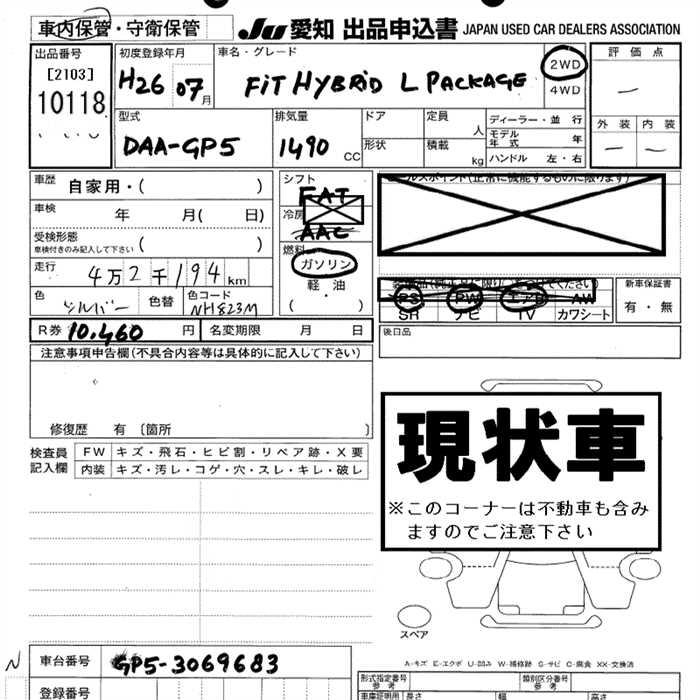 車内保管・守衛保管 Ju 愛知 出品申込書 JAPAN USED CAR DEALERS ASSOCIATION
出品番号 初度登録年月 車名・グレード 評価点
[2103] H26 07月 FiT HYBRiD L PACKAGE 2WD
10118 4WD
型式 排気量 ドア 定員 人 ディーラー・並行 外装 内装
DAA-GP5 1490 CC 形状 積載 kg モデル年式 年
ハンドル 左・右
車歴 自家用・( ) シフト
FAT
車検 年 月( 日) 冷房
AAC
受検形態 ( )
車検付きのみ記入して下さい
燃料
ガソリン
軽油
( )
走行 4万2千194km
色 シルバー 色替 色コード NH823M
PS PW エアB AW
SR ナビ TV カワシート
新車保証書
有・無
R券 10,460 円 名変期限 月 日
後日品
注意事項申告欄(不具合内容等は具体的に記入して下さい)
修復歴 有 〔箇所 〕
現状車
※このコーナーは不動車も含み
ますのでご注意下さい
検査員 FW キズ・飛石・ヒビ割・リペア跡・X要
記入欄 内装 キズ・汚レ・コゲ・穴・スレ・キレ・破レ
スペア
A-キズ E-エクボ U-凹み W-補修跡 S-サビ C-腐食 XX-交換済
N 車台番号 GP5-3069683
登録番号
形式指定番号 参考 類別区分番号 参考
車庫証明用 長さ 幅 高さ